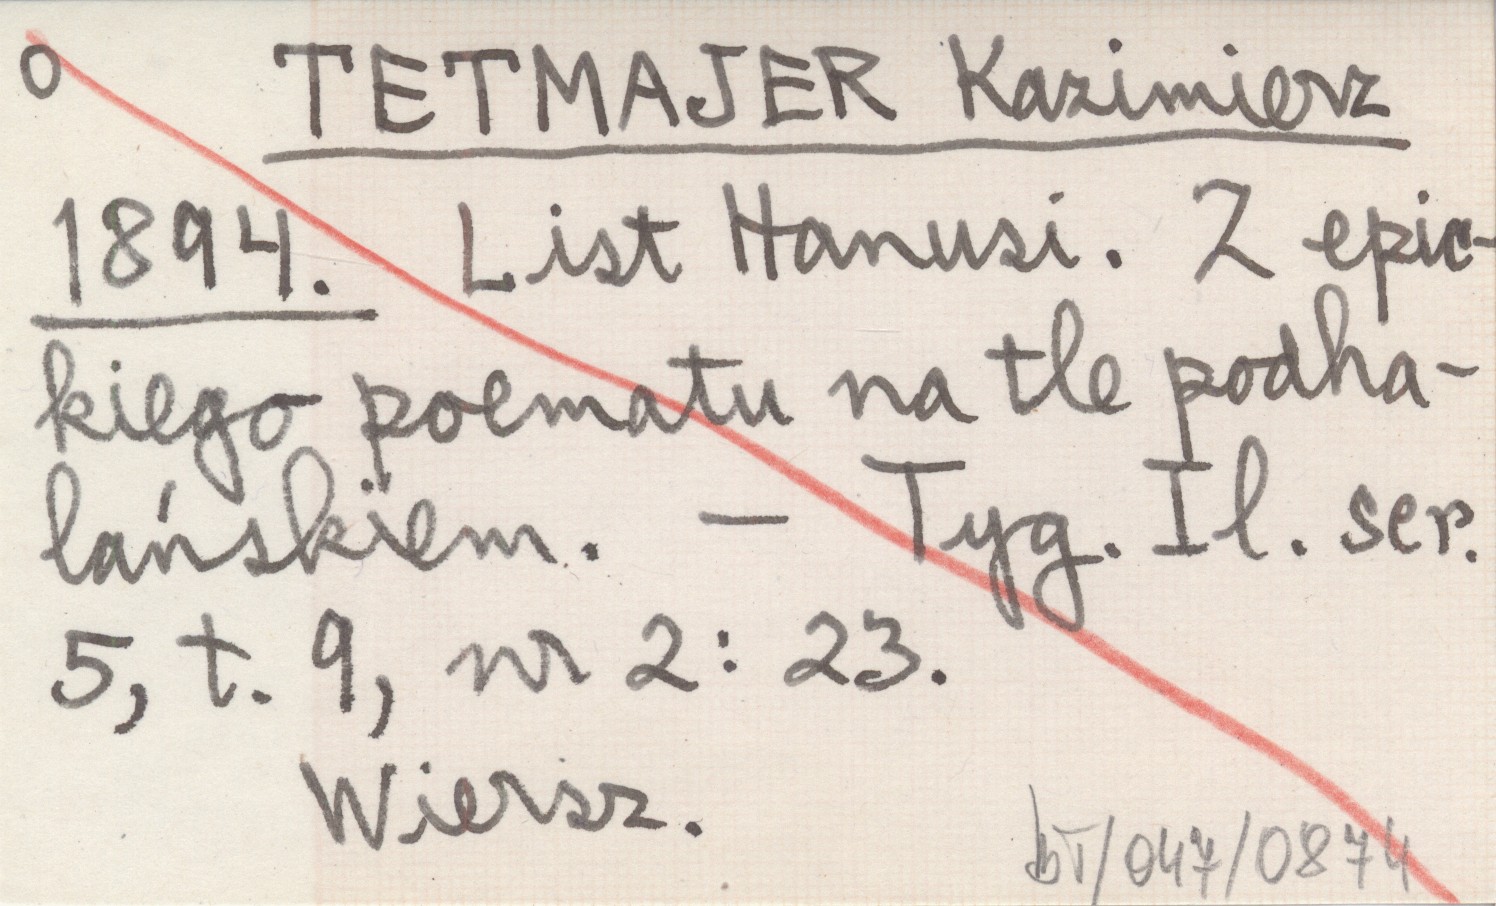 O TETMAJER Kazimierz
1894. List Hanusi. Z epic-
kiego poematu na tle podha-
lańskiem. — Tyg. Il. ser.
5, t. 9, nr 2: 23.
Wiersz.
bT/047/0874